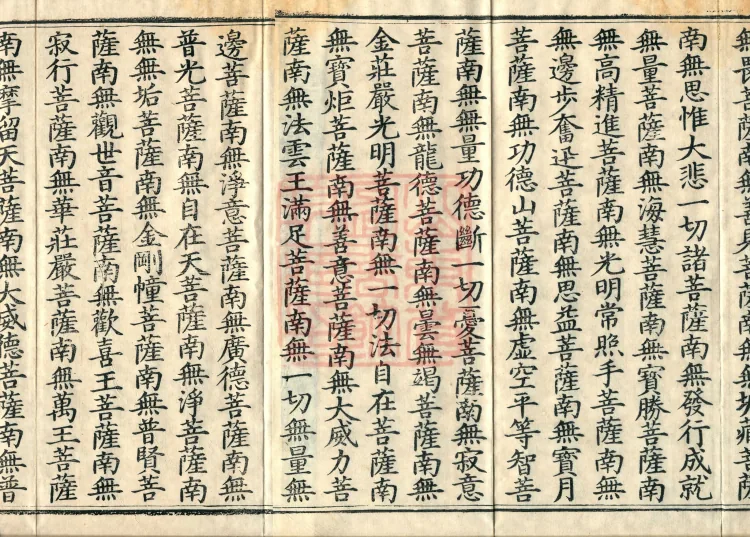 無畏菩薩南無見菩薩南無無垢藏菩
南無思惟大悲一切諸菩薩南無發行成就
無量菩薩南無海慧菩薩南無寶勝菩薩南
無高精進菩薩南無光明常照手菩薩南無
無邊步奮迅菩薩南無思益菩薩南無寶月
菩薩南無功德山菩薩南無虛空平等智菩
薩南無無量功德斷一切憂菩薩南無寂意
菩薩南無龍德菩薩南無曇無竭菩薩南無
金莊嚴光明菩薩南無一切法自在菩薩南
無寶炬菩薩南無善意菩薩南無大威力菩
薩南無法雲王滿足菩薩南無一切無量無
邊菩薩南無淨意菩薩南無廣德菩薩南無
普光菩薩南無自在天菩薩南無淨菩薩南
無無垢菩薩南無金剛幢菩薩南無普賢菩
薩南無觀世音菩薩南無歡喜王菩薩南無
寂行菩薩南無華莊嚴菩薩南無萬王菩薩
南無摩留天菩薩南無大威德菩薩南無普